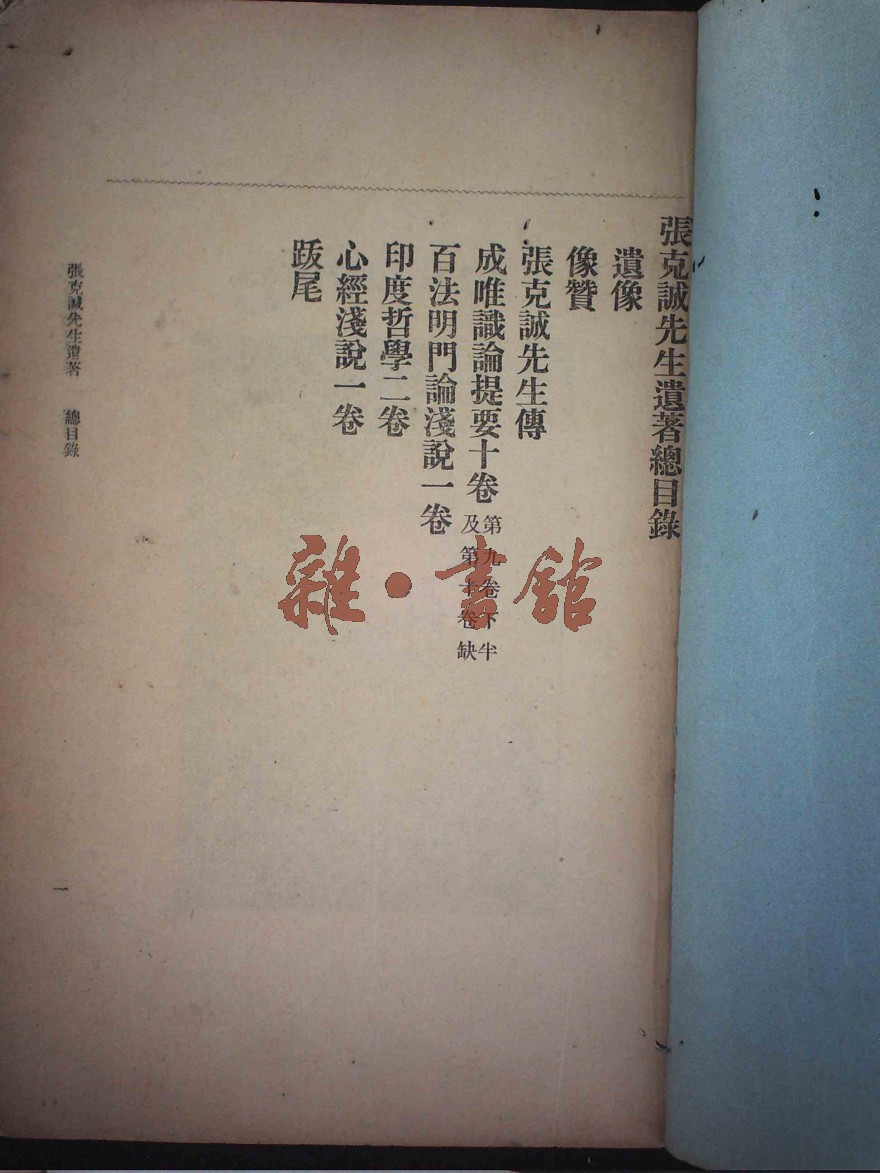 張克誠先生遺著總目錄
遺像
像贊
張克誠先生傳
成唯識論提要十卷
第九卷下半
及第十卷缺
百法明門論淺說一卷
印度哲學二卷
心經淺說一卷
跋尾
張克誠先生遺著 總目錄
二
雜·書舘